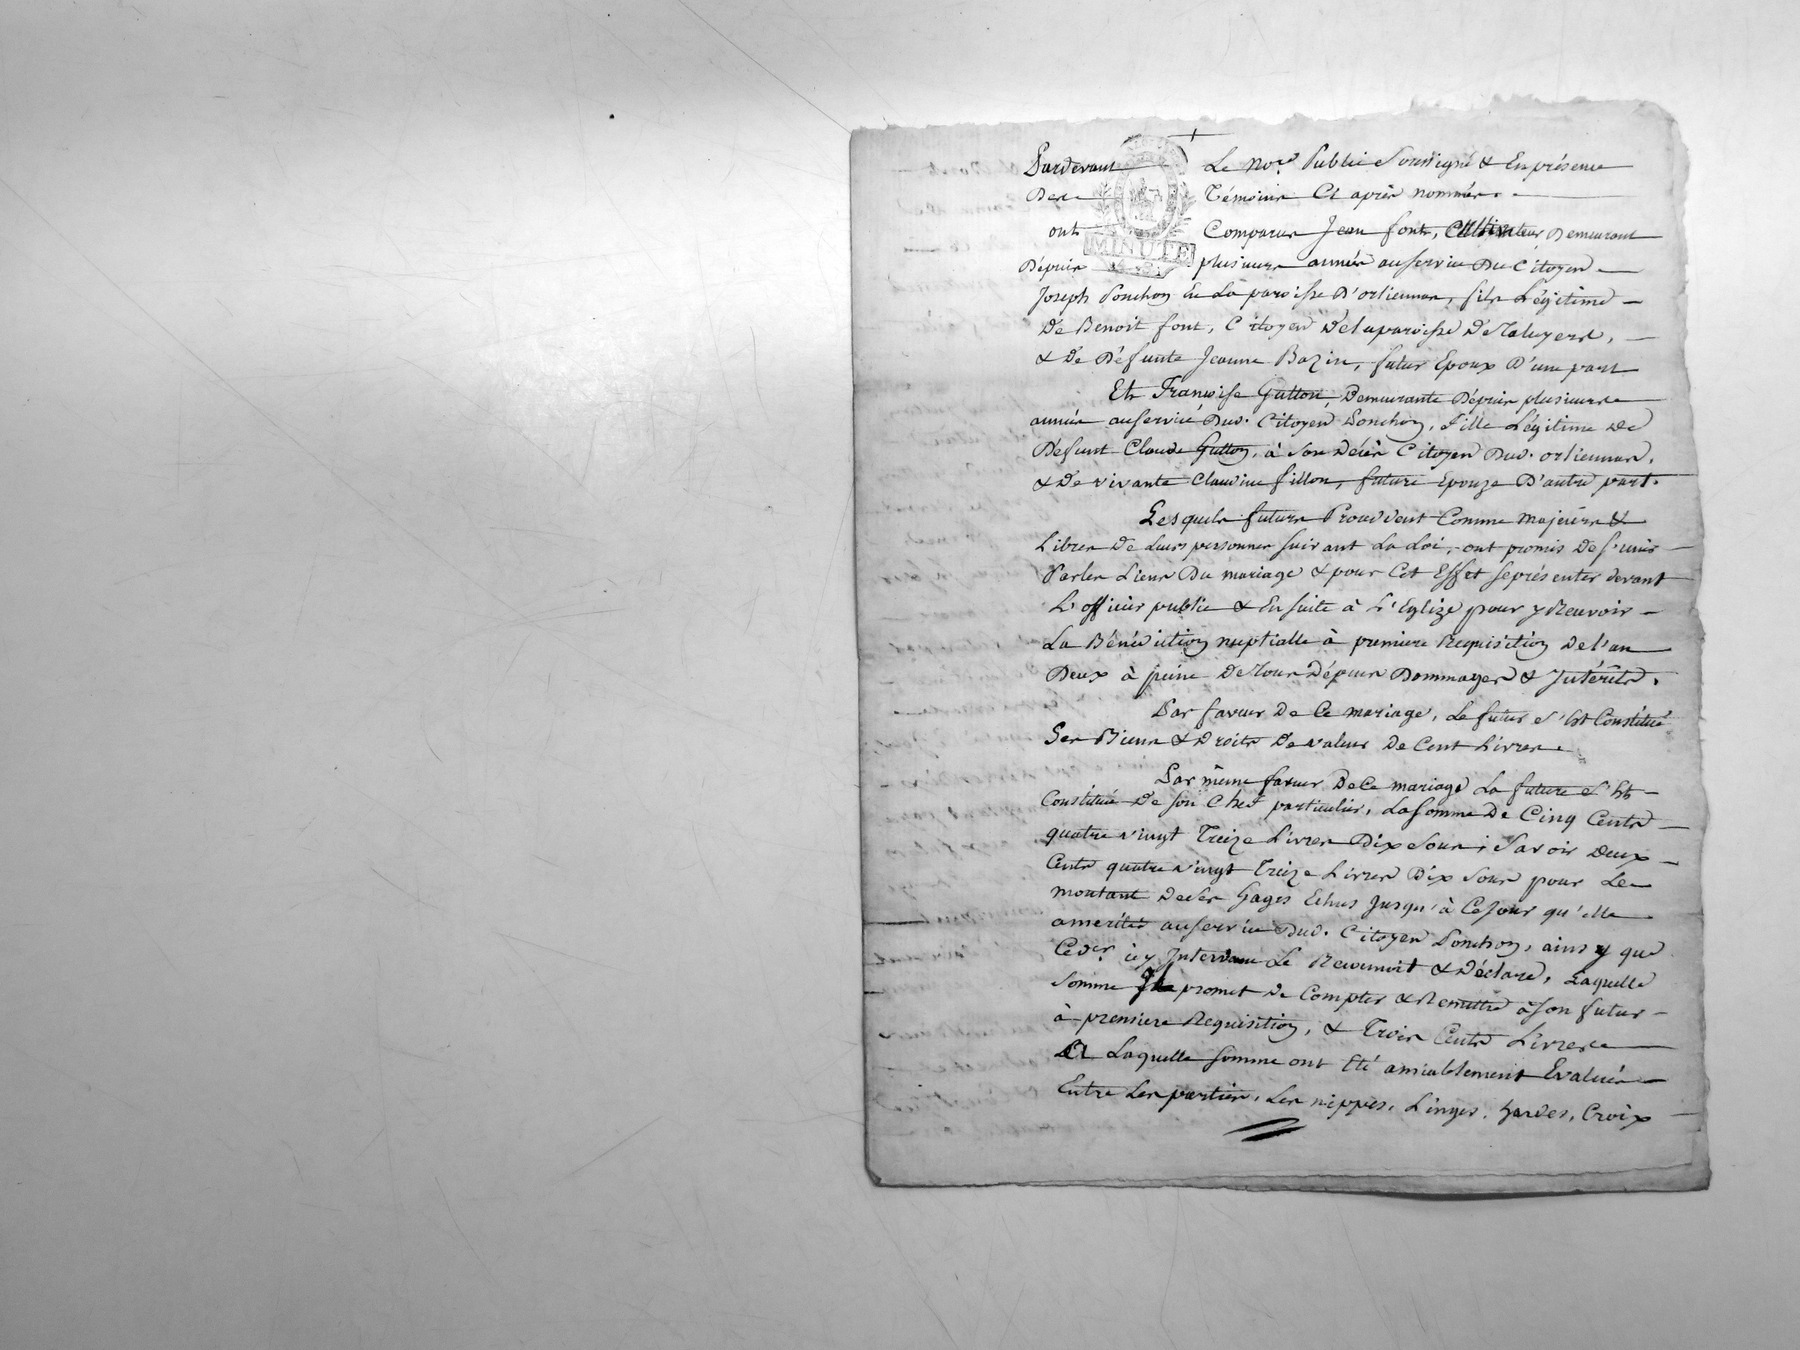 Pardevant Le No.re Public Soussigné & En présence
Des Témoins Ci après nommés.
ont Comparus Jean font, Cultivateur, Demeurant
Dépuis plusieurs année au service Du Citoyen
MINUTE
Joseph Ponchon En La paroisse D'orliennas, fils Légitime
De Benoit font, Citoyen De la paroisse De Taluyers,
& De Défunte Jeanne Bazin, futur Epoux D'une part
Et Françoise Gutton, Demeurante Dépuis plusieurs
année au service Dud. Citoyen Ponchon, Fille Légitime De
Défunt Claude Gutton, à son Décès Citoyen Dud. orliennas,
& De vivante Claudine fillon, future Epouze D'autre part.
Lesquels futurs Procédent Comme majeurs &
Libres De Leurs personnes suivant La Loi, ont promis De s'unir
Par les Liens Du mariage & pour Cet Effet se présenter devant
L'officier public & En suite à L'Eglize pour y Recevoir
La Bénédiction nuptialle à premiere Requisition De l'un
Deux à peine De tous Dépens Dommages & Intérêts.
Par faveur De Ce mariage, Le futur s'Est Constitué
Ses Biens & Droits De valeur De Cent Livres.
Par même faveur De Ce mariage La future s'Est
Constitué De son Chef particulier, La somme De Cinq Cents
quatre vingt Treize Livres Dix Sous; Savoir Deux
Cents quatre vingt Treize Livres Dix Sous pour Le
montant De ses Gages Echus Jusqu'à Ce Jour qu'elle
a merités au service Dud. Citoyen Ponchon, ainsy que
Ced.r icy Intervenu Le Reconnoit & Déclare, Laquelle
Somme Il promet De Compter & Remettre à son futur
à premiere Requisition, & Trois Cents Livres
A Laquelle Somme ont Eté amiablement Evalués
Entre Les parties, Les nippes, Linges, hardes, Croix